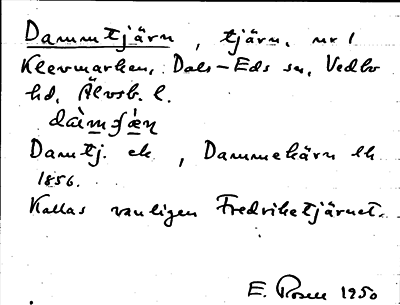 Dammtjärn, tjärn. nr 1
Klevmarken, Dals-Eds sn, Vedbo
hd, Älvsb. l.
Damtj. ek, Dammekärn lk
1856.
Kallas vanligen Fredrikstjärnet.
E. Rosell 1950